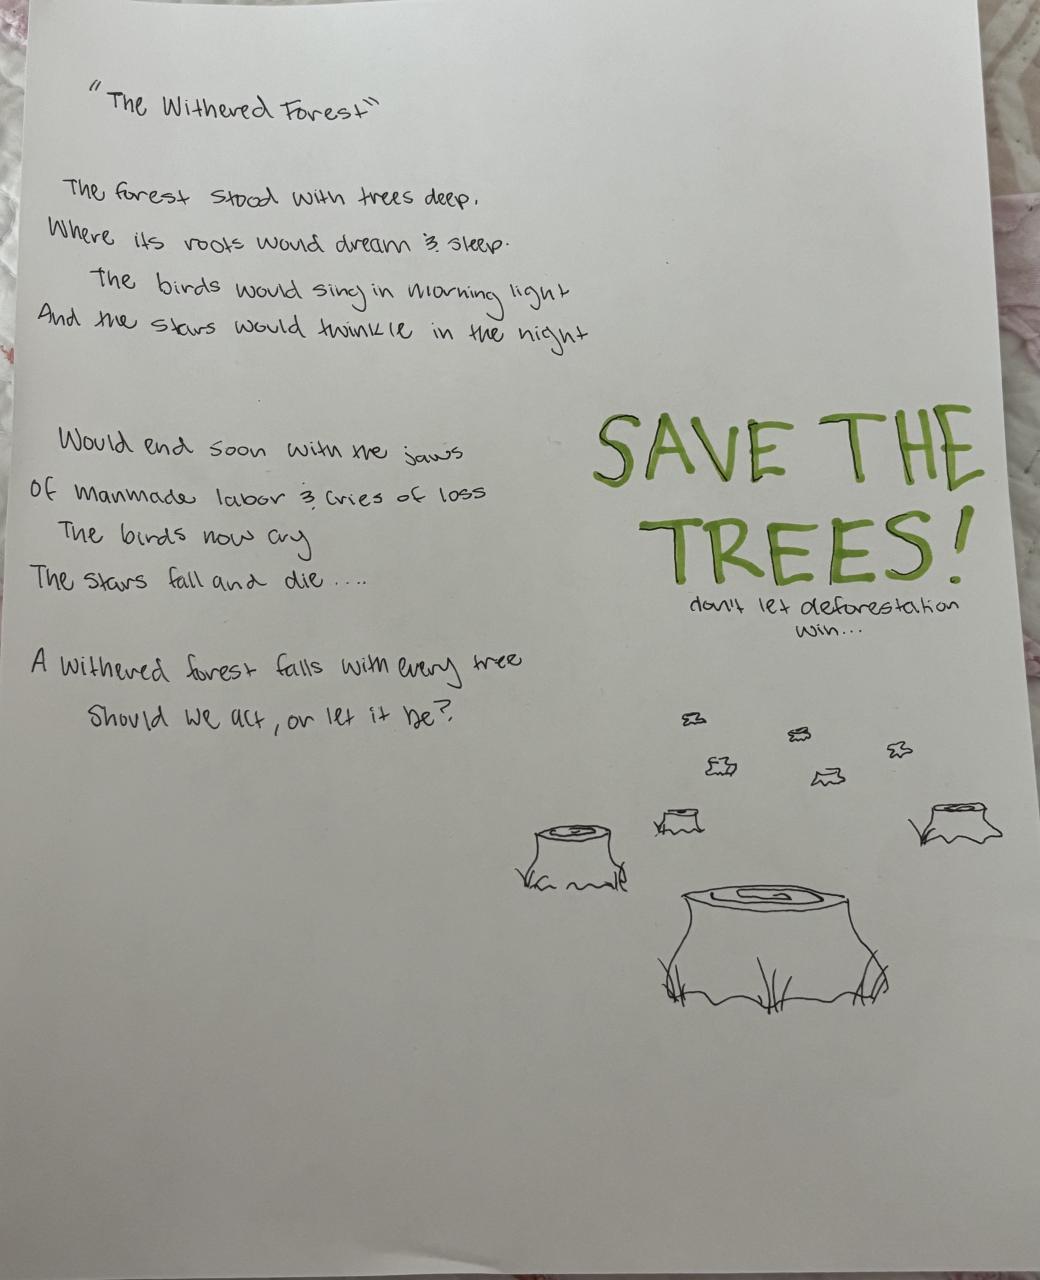 "The Withered Forest"
The forest stood with trees deep.
Where its roots would dream & sleep.
The birds would sing in morning light
And the stars would twinkle in the night
Would end soon with the jaws
of manmade labor & cries of loss
The birds now cry
The stars fall and die ....
A withered forest falls with every tree
Should we act, or let it be?
SAVE THE
TREES!
don't let deforestation
win...